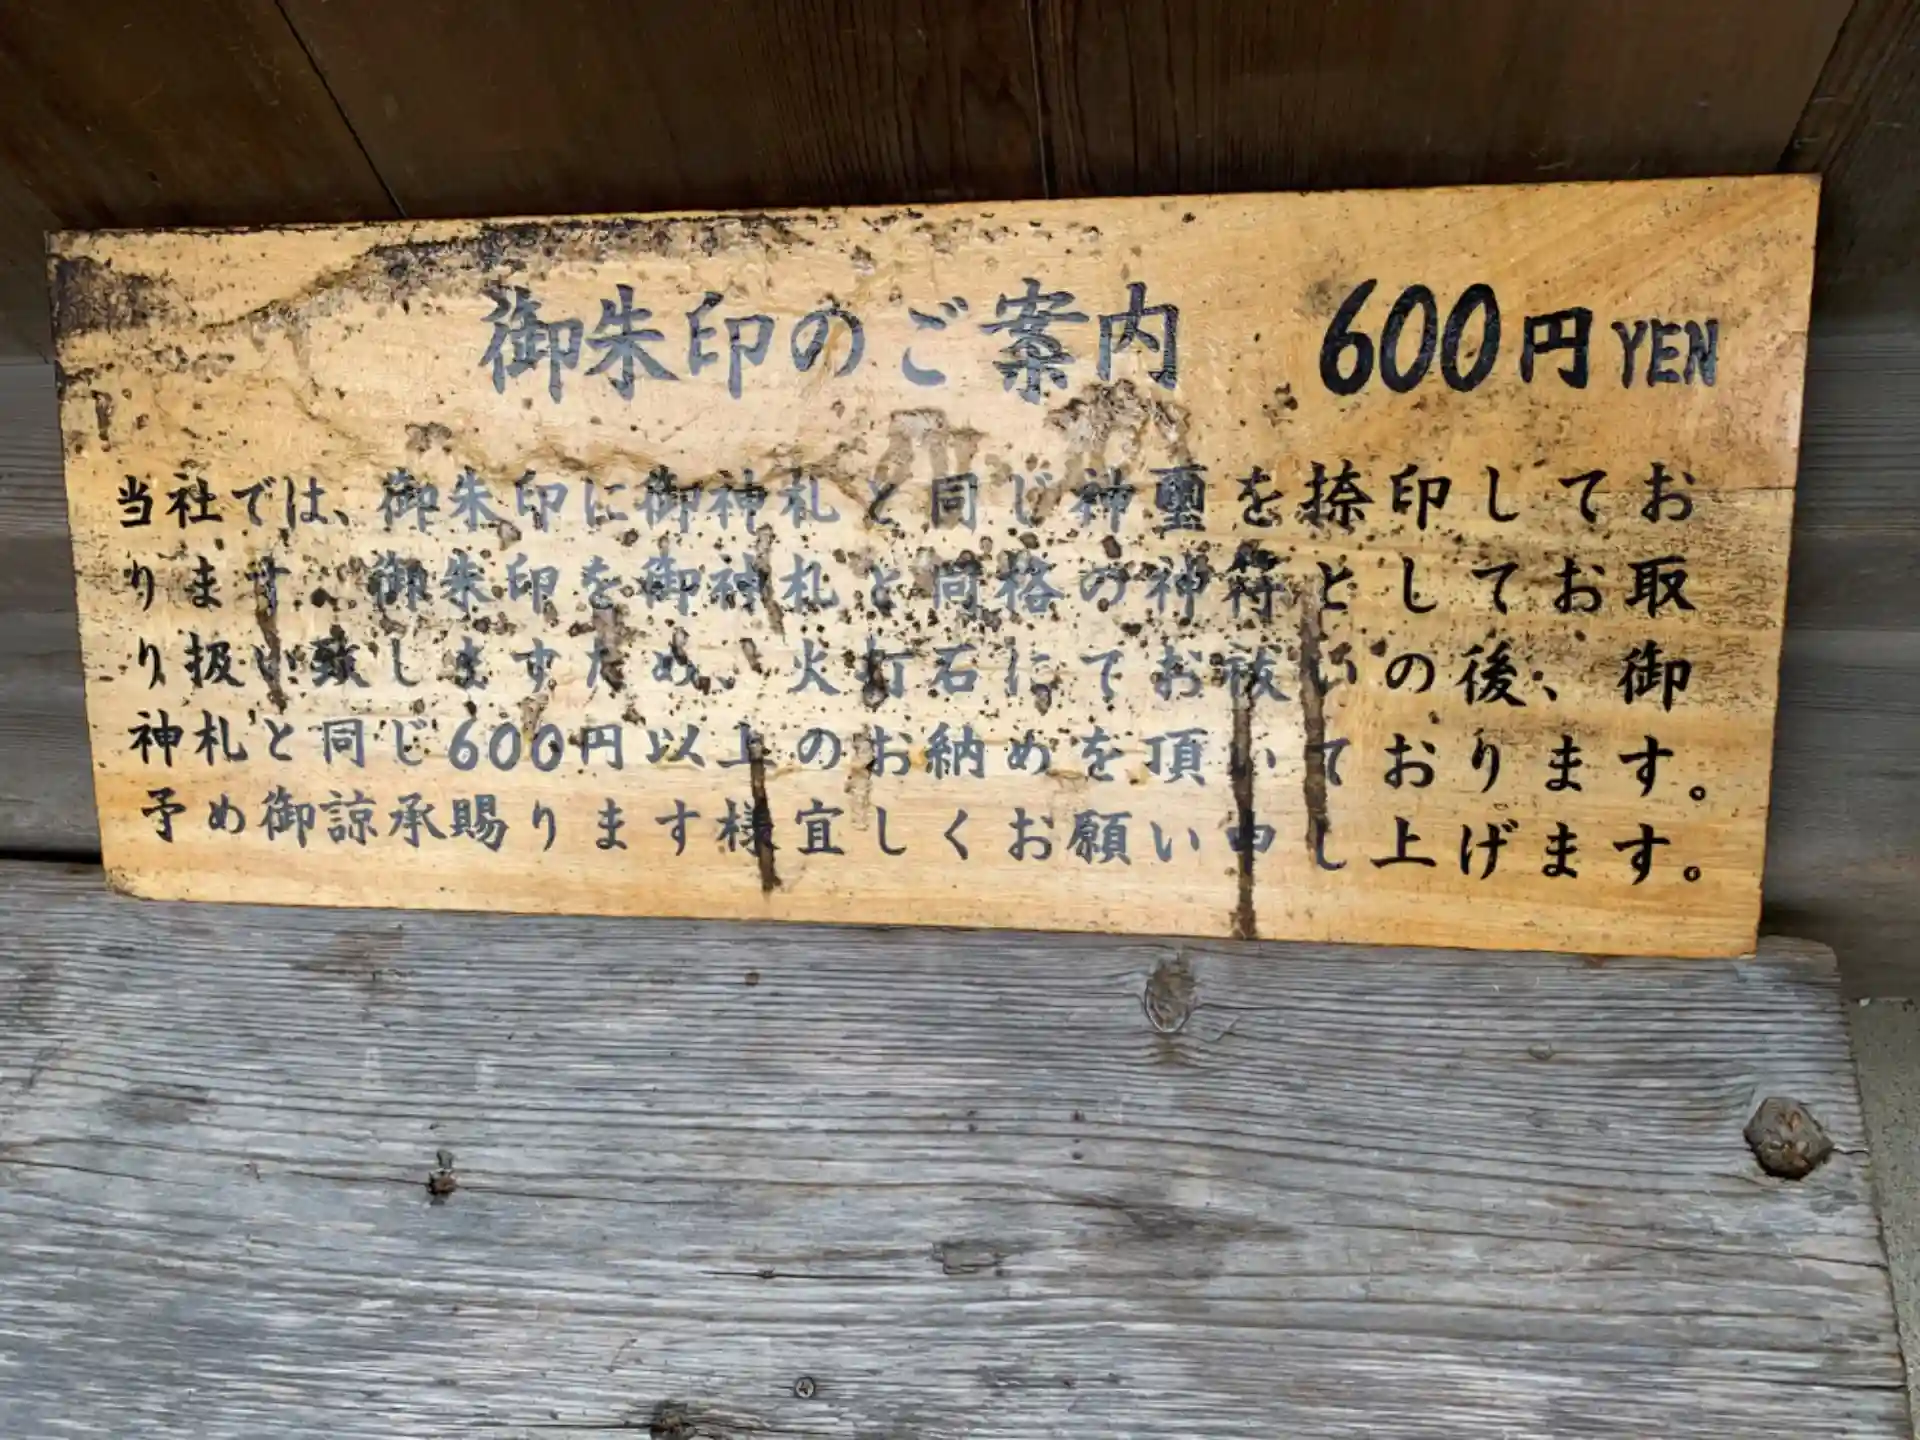 御朱印のご案内 600円 YEN
当社では、御朱印に御神札と同じ神璽を捺印してお
ります。御朱印を御神札と同格の神符としてお取
り扱い致しますため、火打石にてお祓いの後、御
神札と同じ600円以上のお納めを頂いております。
予め御諒承賜ります様宜しくお願い申し上げます。